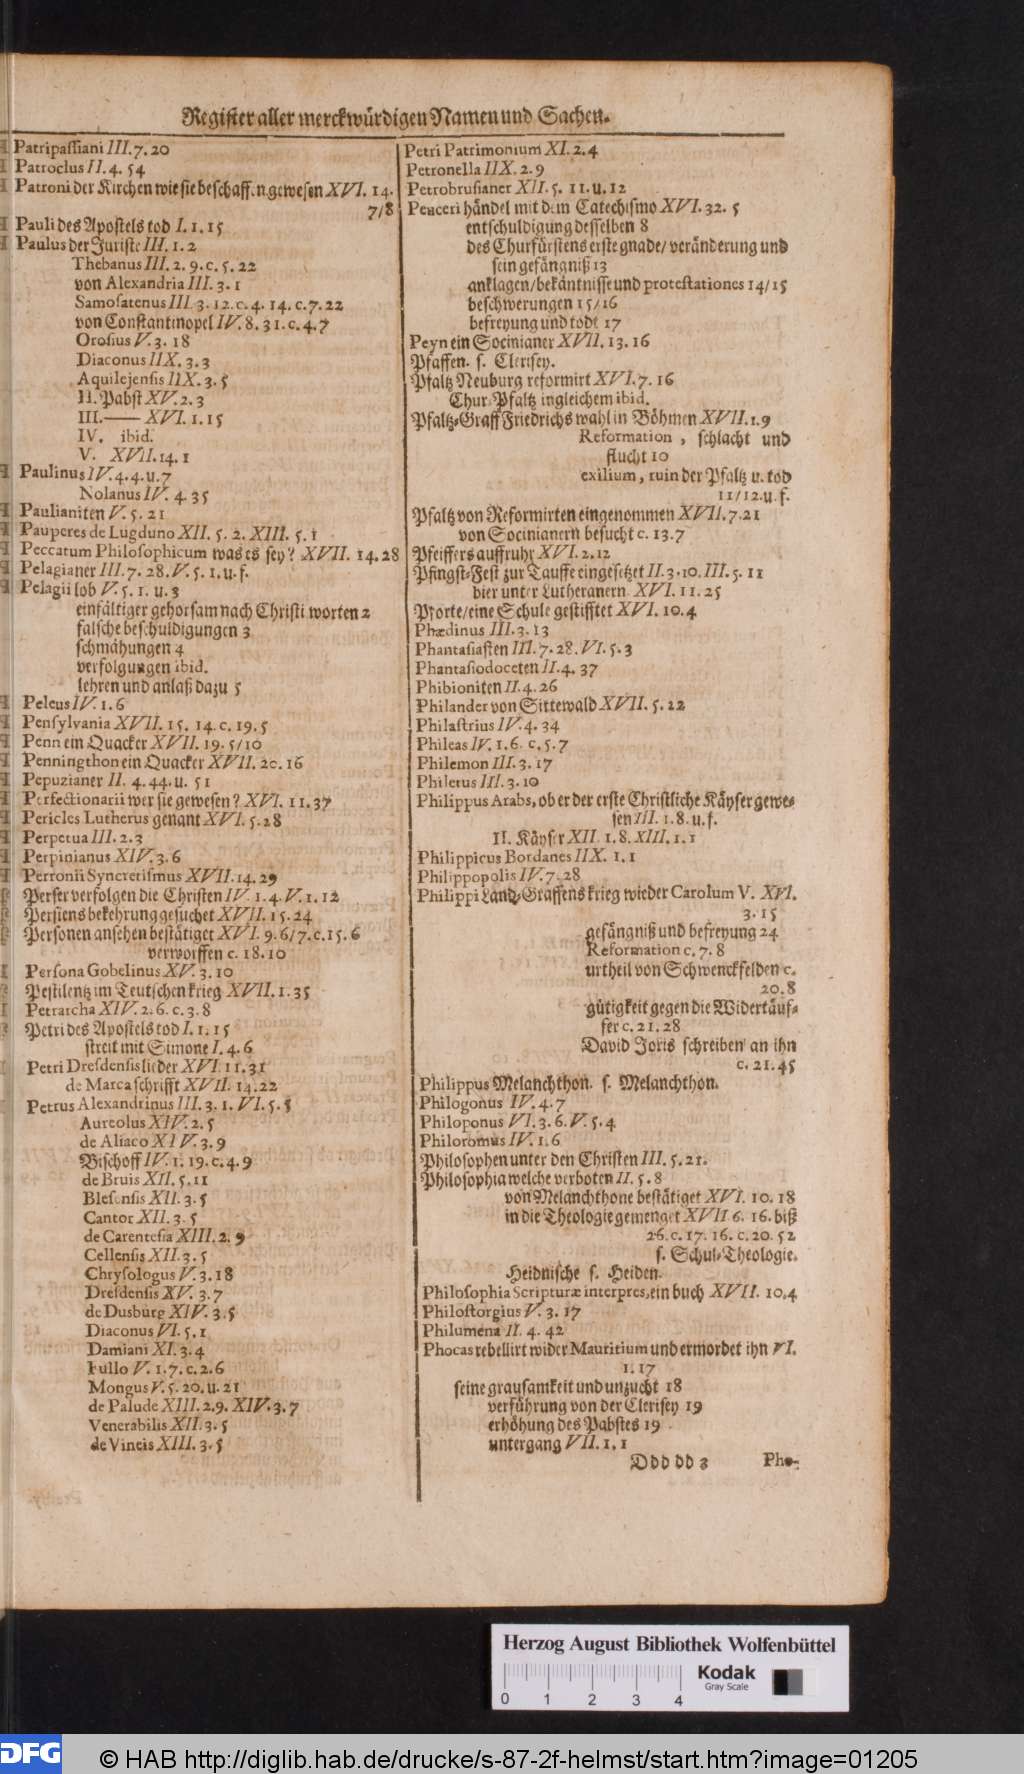 Register aller merckwürdigen Namen und Sachen.
Patripassiani III. 7. 20
Patroclus II. 4. 54
Patroni der Kirchen wie sie beschaffen gewesen XVI. 14.
7/8
Pauli des Apostels tod I. 1. 15
Paulus der Juriste III. 1. 2
Thebanus III. 2. 9. c. 5. 22
von Alexandria III. 3. 1
Samosatenus III. 3. 12. c. 4. 14. c. 7. 22
von Constantinopel IV. 8. 31. c. 4. 7
Orosius V. 3. 18
Diaconus IIX. 3. 3
Aquilejensis IIX. 3. 5
II. Pabst XV. 2. 3
III. —— XVI. 1. 15
IV. ibid.
V. XVII. 14. 1
Paulinus IV. 4. 4. u. 7
Nolanus IV. 4. 35
Paulianiten V. 5. 21
Pauperes de Lugduno XII. 5. 2. XIII. 5. 1
Peccatum Philosophicum was es sey? XVII. 14. 28
Pelagianer III. 7. 28. V. 5. 1. u. f.
Pelagii lob V. 5. 1. u. 3
einfältiger gehorsam nach Christi worten 2
falsche beschuldigungen 3
schmähungen 4
verfolgungen ibid.
lehren und anlaß dazu 5
Peleus IV. 1. 6
Pensylvania XVII. 15. 14. c. 19. 5
Penn ein Quacker XVII. 19. 5/10
Penningthon ein Quacker XVII. 20. 16
Pepuzianer II. 4. 44. u. 51
Perfectionarii wer sie gewesen? XVI. 11. 37
Pericles Lutherus genant XVI. 5. 28
Perpetua III. 2. 3
Perpinianus XIV. 3. 6
Perronii Syncretismus XVII. 14. 29
Perser verfolgen die Christen IV. 1. 4. V. 1. 12
Persiens bekehrung gesuchet XVII. 15. 24
Personen ansehen bestätiget XVI. 9. 6/7. c. 15. 6
verworffen c. 18. 10
Persona Gobelinus XV. 3. 10
Pestilentz im Teutschen krieg XVII. 1. 35
Petrarcha XIV. 2. 6. c. 3. 8
Petri des Apostels tod I. 1. 15
streit mit Simone I. 4. 6
Petri Dresdensis lieder XVI. 11. 31
de Marca schrifft XVII. 14. 22
Petrus Alexandrinus III. 3. 1. VI. 5. 5
Aureolus XIV. 2. 5
de Aliaco XIV. 3. 9
Bischoff IV. 1. 19. c. 4. 9
de Bruis XII. 5. 11
Blesensis XII. 3. 5
Cantor XII. 3. 5
de Carentesia XIII. 2. 9
Cellensis XII. 3. 5
Chrysologus V. 3. 18
Dresdensis XV. 3. 7
de Dusburg XIV. 3. 5
Diaconus VI. 5. 1
Damiani XI. 3. 4
Fullo V. 1. 7. c. 2. 6
Mongus V. 5. 20. u. 21
de Palude XIII. 2. 9. XIV. 3. 7
Venerabilis XII. 3. 5
de Vineis XIII. 3. 5
Petri Patrimonium XI. 2. 4
Petronella IIX. 2. 9
Petrobrusianer XII. 5. 11. u. 12
Peuceri händel mit dem Catechismo XVI. 32. 5
entschuldigung desselben 8
des Churfürstens erste gnade/ veränderung und
sein gefängniß 13
anklagen/ bekäntnisse und protestationes 14/15
beschwerungen 15/16
befreyung und todt 17
Peyn ein Socinianer XVII. 13. 16
Pfaffen. s. Clerisey.
Pfaltz Neuburg reformirt XVI. 7. 16
Chur-Pfaltz ingleichem ibid.
Pfaltz-Graff Friedrichs wahl in Böhmen XVII. 1. 9
Reformation, schlacht und
flucht 10
exilium, ruin der Pfaltz u. tod
11/12. u. f.
Pfaltz von Reformirten eingenommen XVII. 7. 21
von Socinianern besucht c. 13. 7
Pfeiffers auffruhr XVI. 2. 12
Pfingst-Fest zur Tauffe eingesetzet II. 3. 10. III. 5. 11
bier unter Lutheranern XVI. 11. 25
Pforte/ eine Schule gestifftet XVI. 10. 4
Phædinus III. 3. 13
Phantasiasten III. 7. 28. VI. 5. 3
Phantasiodoceten II. 4. 37
Phibioniten II. 4. 26
Philander von Sittewald XVII. 5. 22
Philastrius IV. 4. 34
Phileas IV. 1. 6. c. 5. 7
Philemon III. 3. 17
Philetus III. 3. 10
Philippus Arabs, ob er der erste Christliche Käyser gewe-
sen III. 1. 8. u. f.
II. Käyser XII. 1. 8. XIII. 1. 1
Philippicus Bordanes IIX. 1. 1
Philippopolis IV. 7. 28
Philippi Land-Graffens krieg wieder Carolum V. XVI.
3. 15
gefängniß und befreyung 24
Reformation c. 7. 8
urtheil von Schwenckfelden c.
20. 8
gütigkeit gegen die Widertäuf-
fer c. 21. 28
David Joris schreiben an ihn
c. 21. 45
Philippus Melanchthon. s. Melanchthon.
Philogonus IV. 4. 7
Philoponus VI. 3. 6. V. 5. 4
Philoromus IV. 1. 6
Philosophen unter den Christen III. 5. 21.
Philosophia welche verboten II. 5. 8
von Melanchthone bestätiget XVI. 10. 18
in die Theologie gemenget XVII. 6. 16. biß
26. c. 17. 16. c. 20. 52
s. Schul-Theologie.
Heidnische s. Heiden.
Philosophia Scripturæ interpres, ein buch XVII. 10. 4
Philostorgius V. 3. 17
Philumena II. 4. 42
Phocas rebellirt wider Mauritium und ermordet ihn VI.
1. 17
seine grausamkeit und unzucht 18
verführung von der Clerisey 19
erhöhung des Pabstes 19
untergang VII. 1. 1
Ddd dd 3 Pho-
Herzog August Bibliothek Wolfenbüttel
Kodak
Gray Scale
0 1 2 3 4
DFG © HAB http://diglib.hab.de/drucke/s-87-2f-helmst/start.htm?image=01205